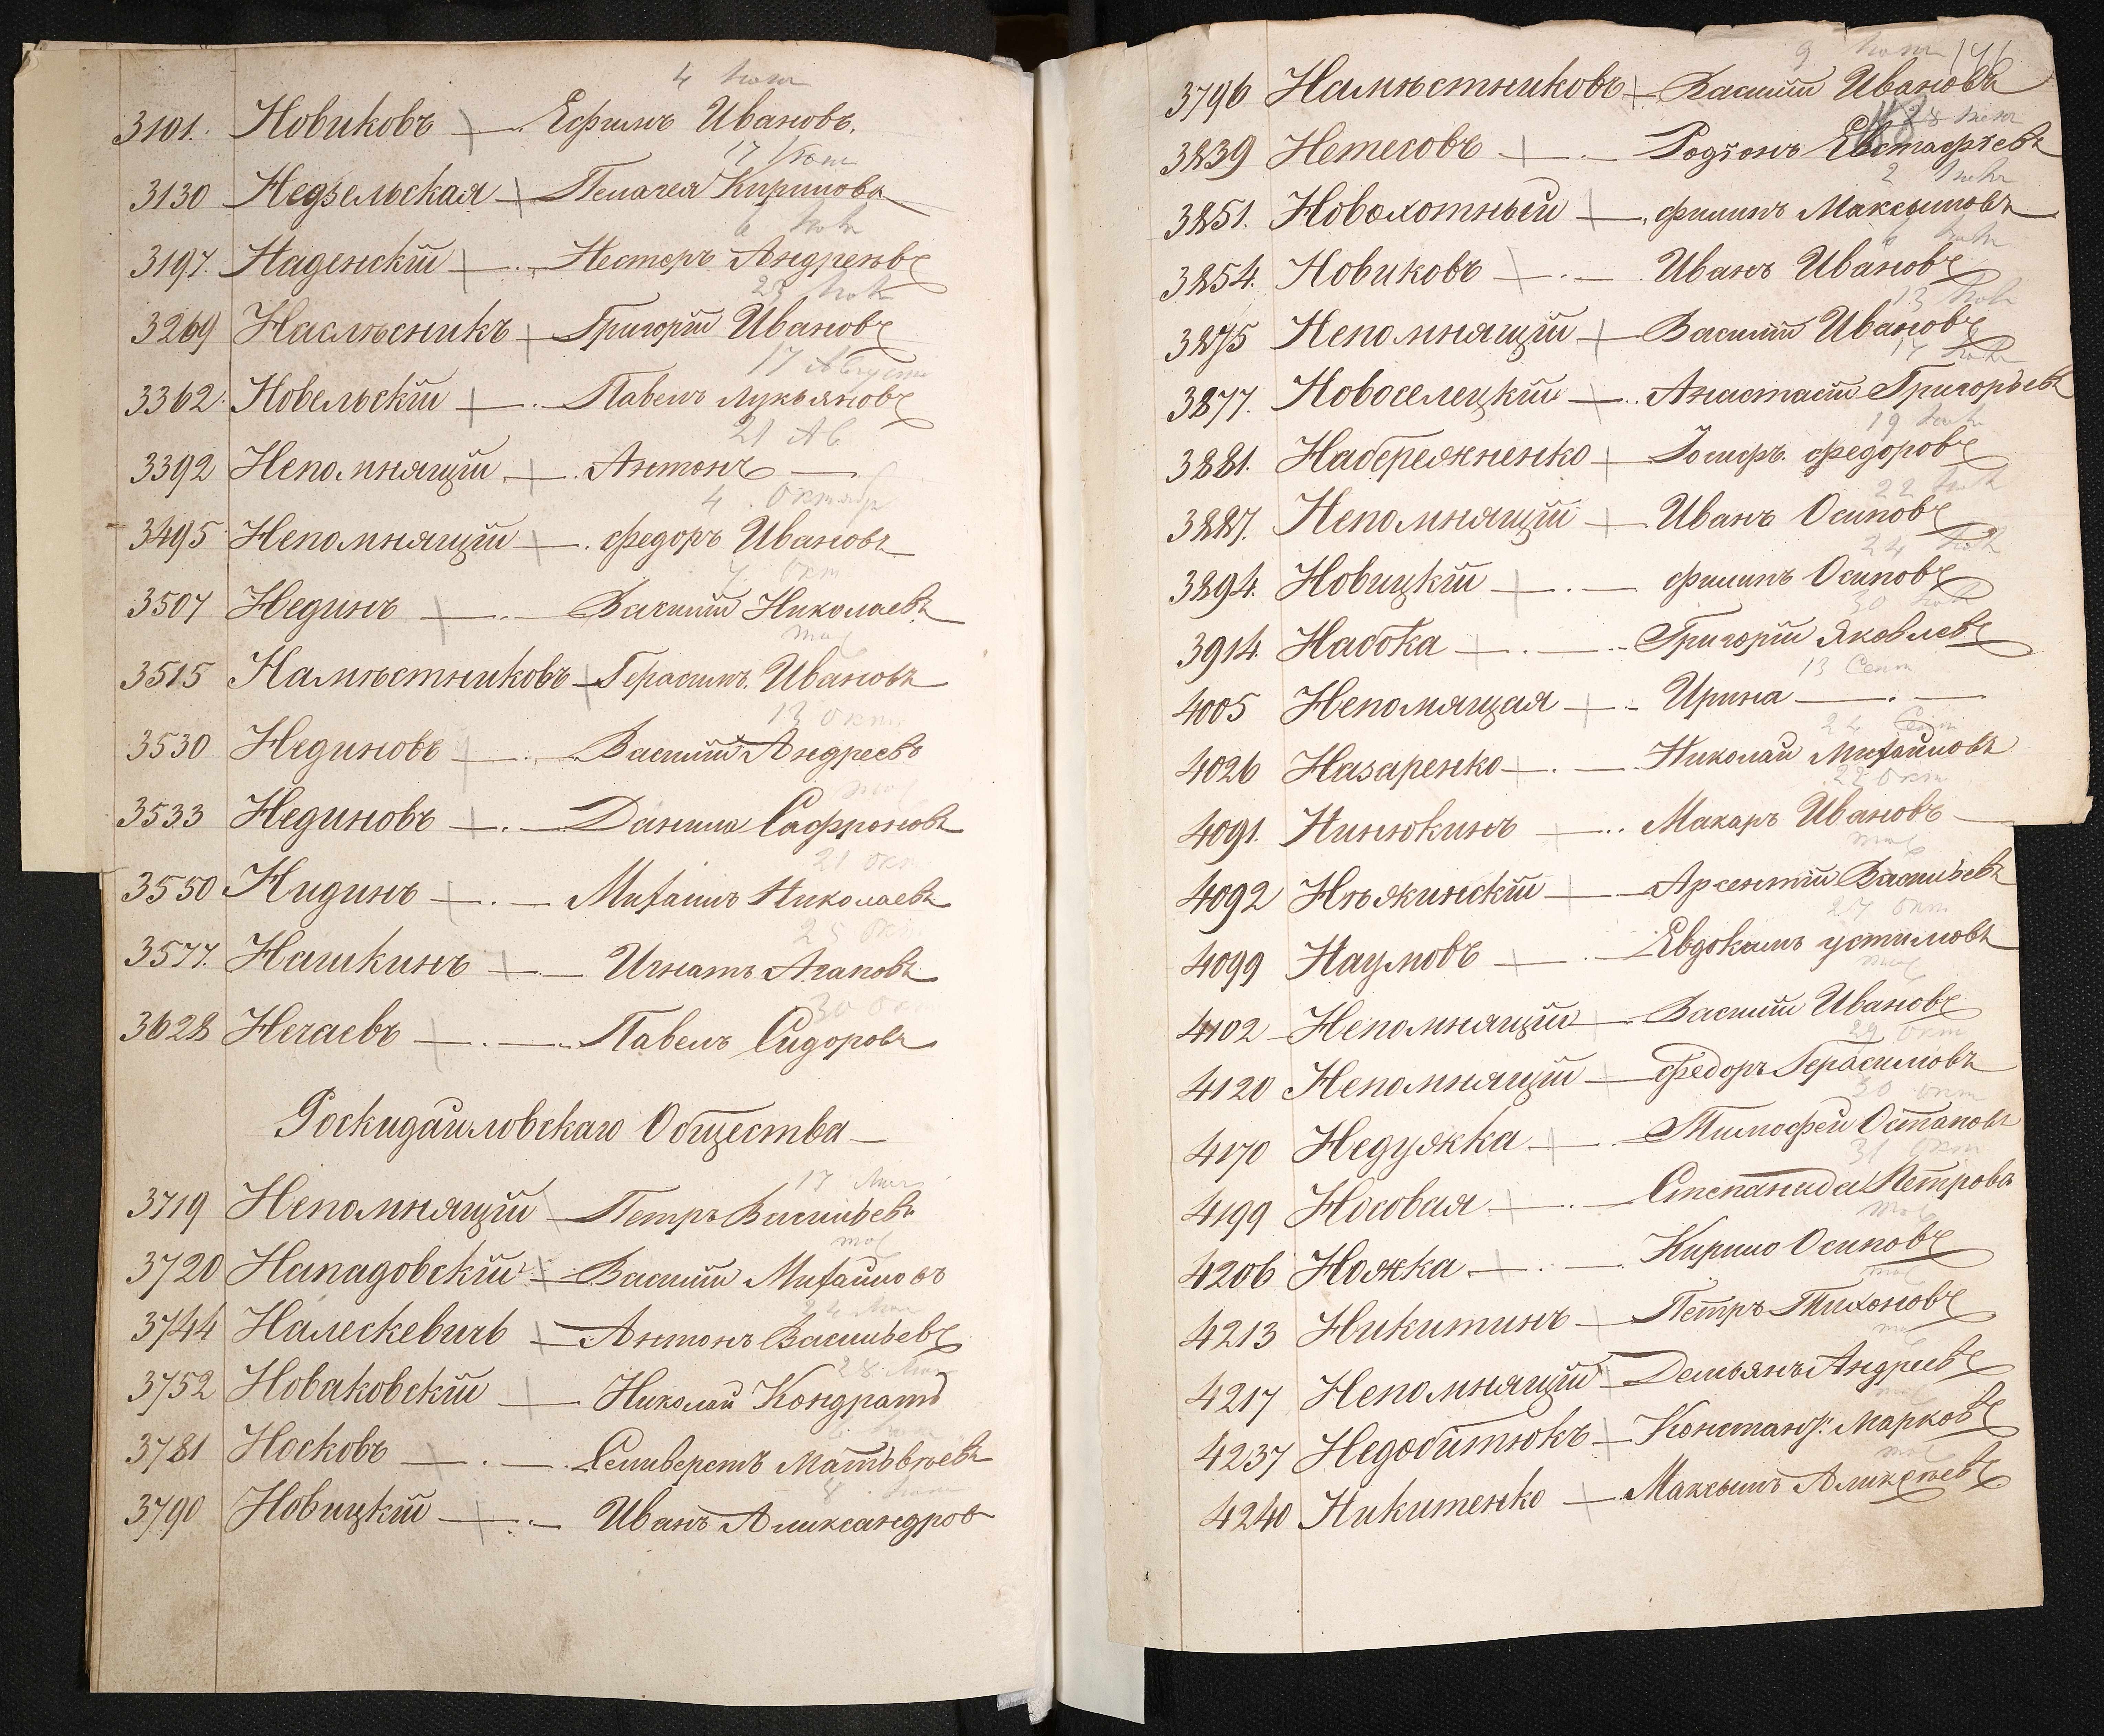 3101. Новиковъ Ефимъ Ивановъ.
3130 Недзельская Пелагея Кирилова
3197. Наденскій Несторъ Андреевъ
3269 Наслѣсникъ Григорій Ивановъ
17 Августа
3362. Новельскій Павелъ Лукьяновъ
21 Ав
3392 Непомнящій Антонъ
4 Октябр
3495 Непомнящій Федоръ Ивановъ
7 окт
3507 Нединъ Василий Николаевъ
3515 Намѣстниковъ Герасимъ Ивановъ
13 окт
3530 Нединовъ Василий Андреевъ
3533 Нединовъ Данила Сафроновъ
21 окт
3550 Нидинъ Михаилъ Николаевъ
25 окт
3577. Нашкинъ Игнатъ Агаповъ
30 окт
3628 Нечаевъ Павелъ Сидоровъ
Роскидайловскаго Общества
17
3719 Непомнящій Петръ Васильевъ
3720 Нападовскій Василий Михайловъ
24
3744 Налескевичъ Антонъ Васильевъ
28
3752 Новаковскій Николай Кондрат
3781 Носковъ Селиверстъ Матвѣевъ
3790 Новицкій Иванъ Александров
3796 Намѣстниковъ Василий Ивановъ
3839 Нетесовъ Родіонъ Евстафіевъ
3851. Новохотный Филипъ Максимовъ
3854. Новиковъ Иванъ Ивановъ
13
3875 Непомнящій Василий Ивановъ
17
3877. Новоселецкій Анастасій Григорьевъ
19
3881. Набережненко Іосифъ Федоровъ
22
3887. Непомнящій Иванъ Осиповъ
24
3894. Новицкій Филипъ Осиповъ
30
3914. Набока Григорій Яковлевъ
13 Сент
4005 Непомящая Ирина
Сент
4026 Назаренко Николай Михайловъ
22 окт
4091. Нинюкинъ Макаръ Ивановъ
4092 Нѣжинскій Арсентій Васильевъ
27 окт
4099 Наумовъ Евдокимъ Устимовъ
4102 Непомнящій Василий Ивановъ
29 окт
4120 Непомнящій Федоръ Герасимовъ
30 окт
4170 Недужка Тимофей Остаповъ
31 окт
4199 Носовая Степанида Петрова
4206 Ножка Кирило Осиповъ
4213 Никитинъ Петръ Тихоновъ
4217 Непомнящій Демьянъ Андреевъ
4237 Недобитюкъ Констант: Марковъ
4240 Никитенко Максимъ Алексѣевъ